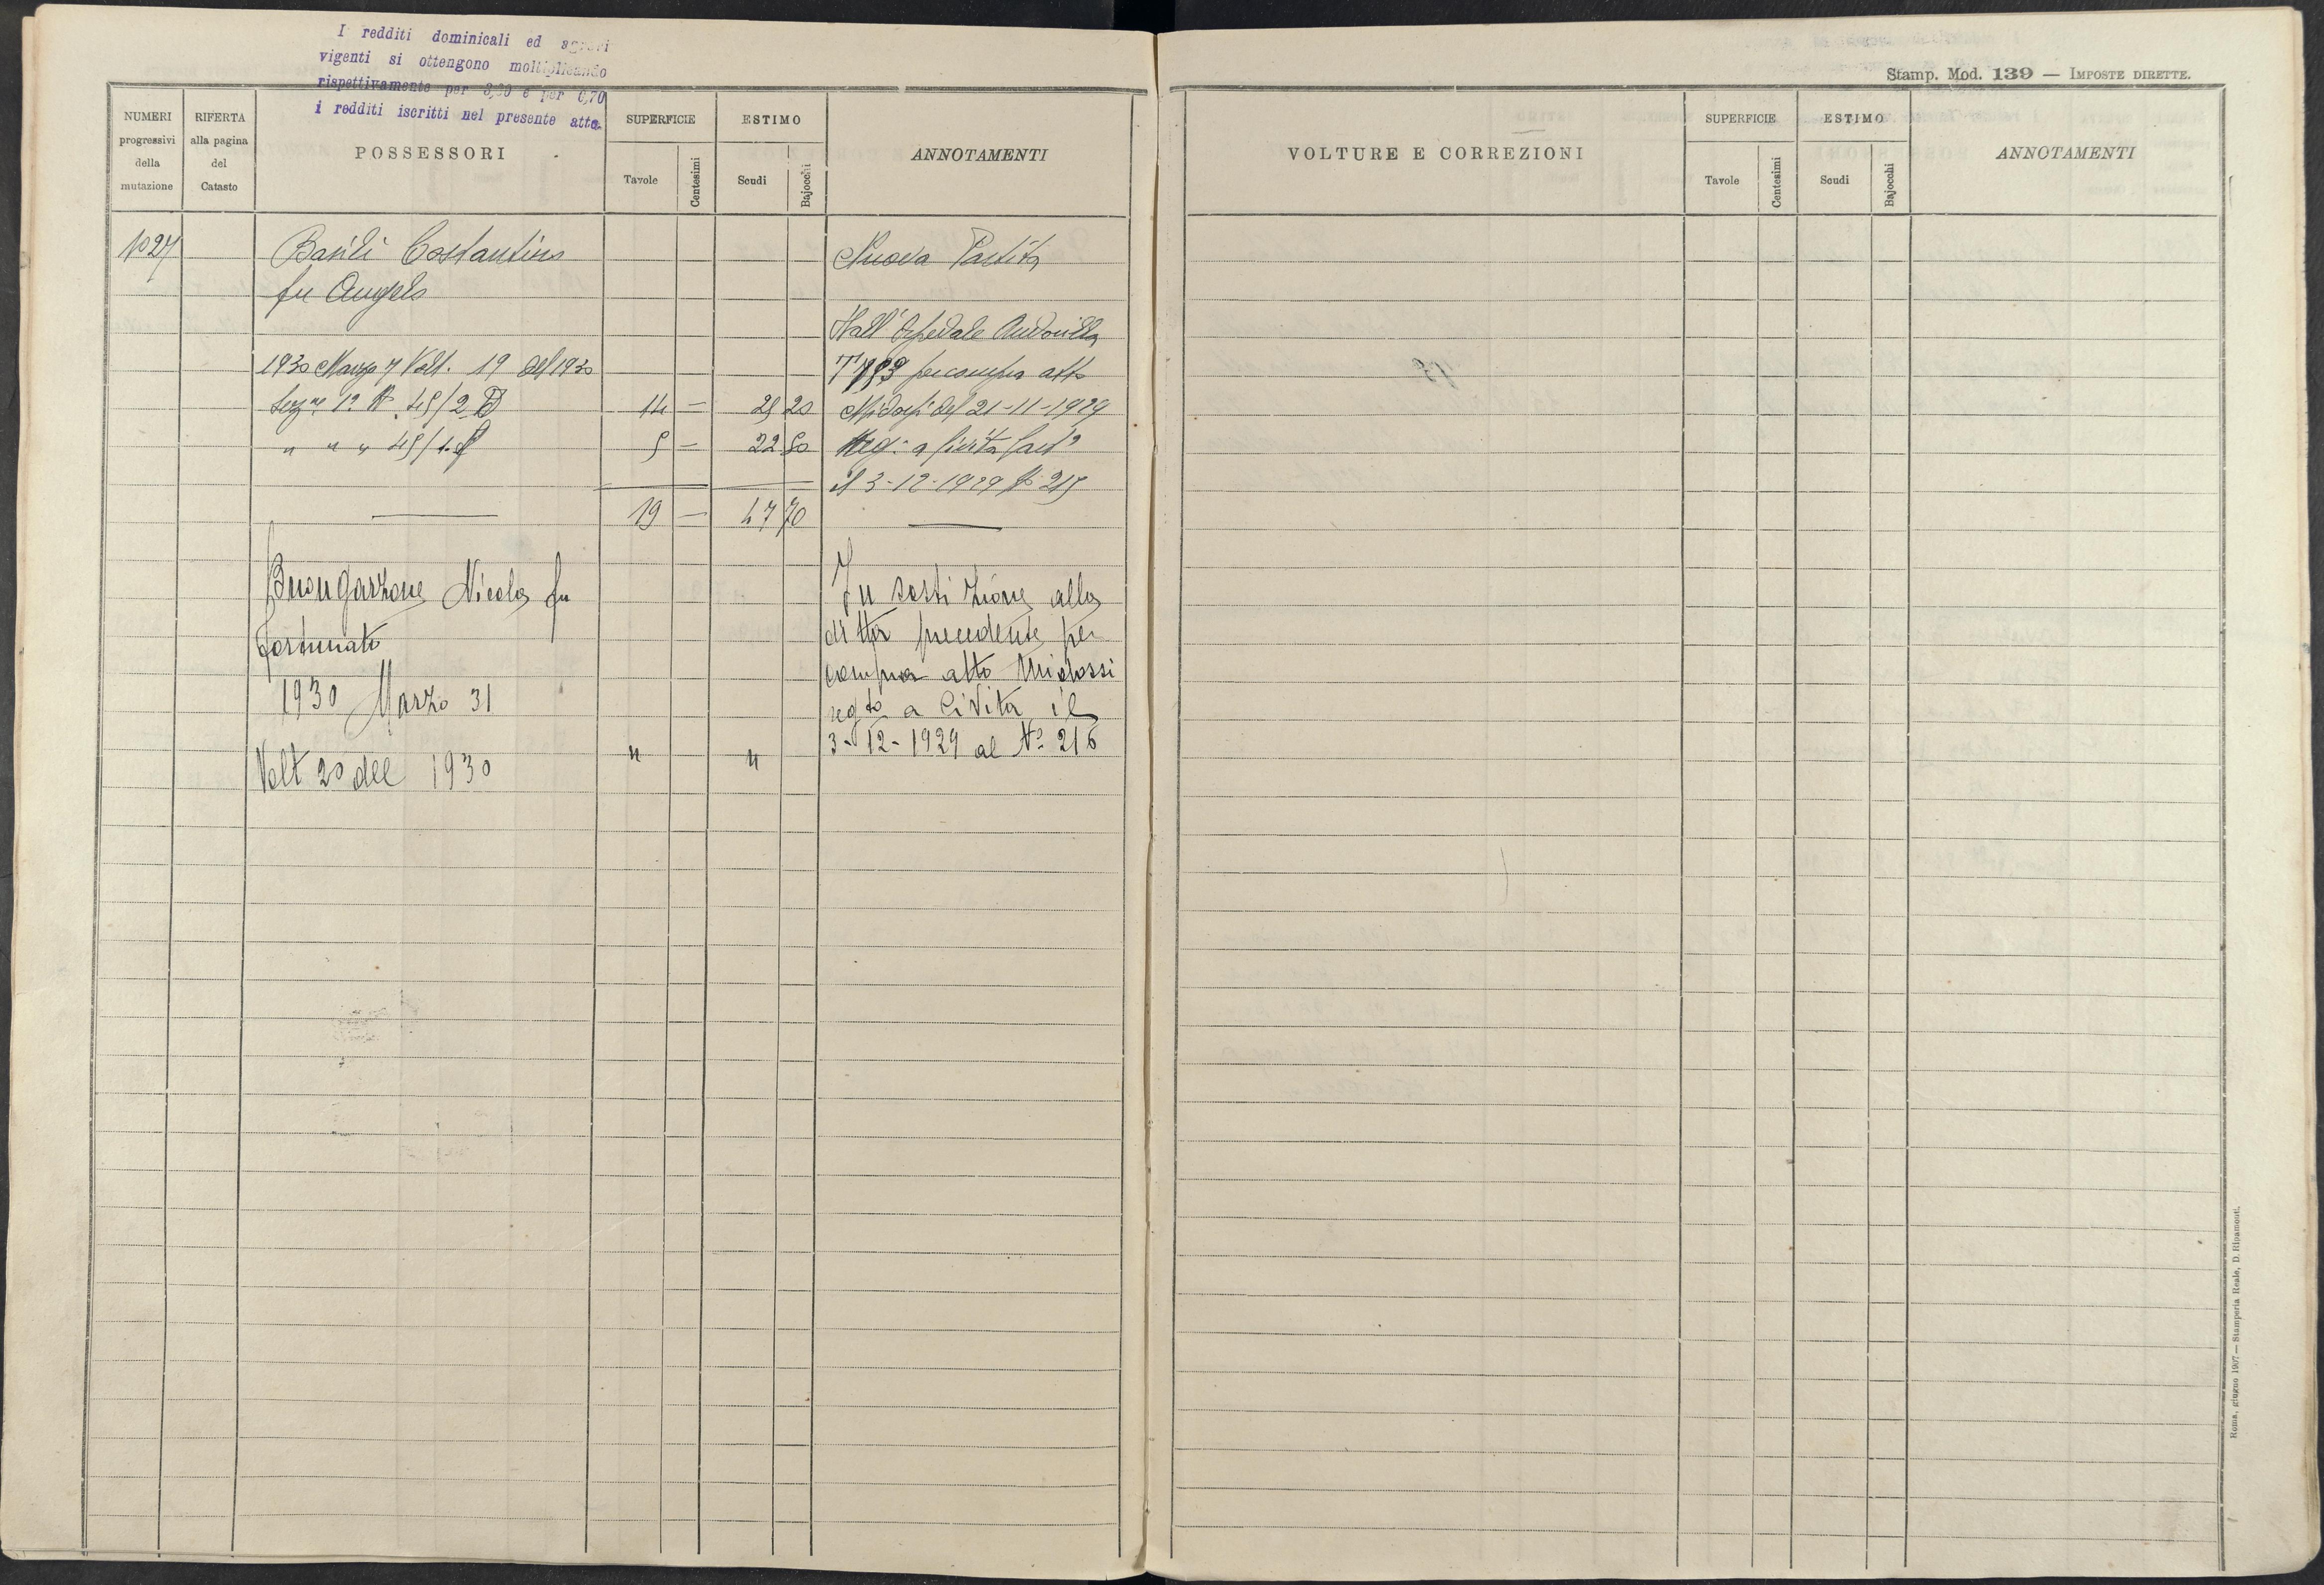 I redditi dominicali ed agrari
vigenti si ottengono moltiplicando
rispettivamente per e per 0,70
i redditi iscritti nel presente atto.
NUMERI
progressivi
della
mutazione
RIFERTA
alla pagina
del
Catasto
POSSESSORI
SUPERFICIE
Tavole
Centesimi
ESTIMO
Scudi
Bajocchi
ANNOTAMENTI
1027
Basili Costantino
fu Angelo
1930 Marzo 7 Volt. 19 del 1930
Sezne 1a N. 45/2 D 14 — 25 20
" " " 45/1. 5 — 22 50
19 — 47 70
Nuova Partita
Dall'Ospedale Andosilla
per compra atto
Midossi del 21-11-1929
Reg: a Civita Cast
il 3-12-1929 N 215
Buongarzone Nicola fu
Fortunato
1930 Marzo 31
Volt 20 del 1930 " "
In sostizione alla
ditta precedente per
compra atto Midossi
regto a Civita il
3-12-1929 al No 216
Stamp. Mod. 139 — IMPOSTE DIRETTE.
VOLTURE E CORREZIONI
SUPERFICIE
Tavole
Centesimi
ESTIMO
Scudi
Bajocchi
ANNOTAMENTI
Roma, giugno 1907 — Stamperia Reale, D. Ripamonti.